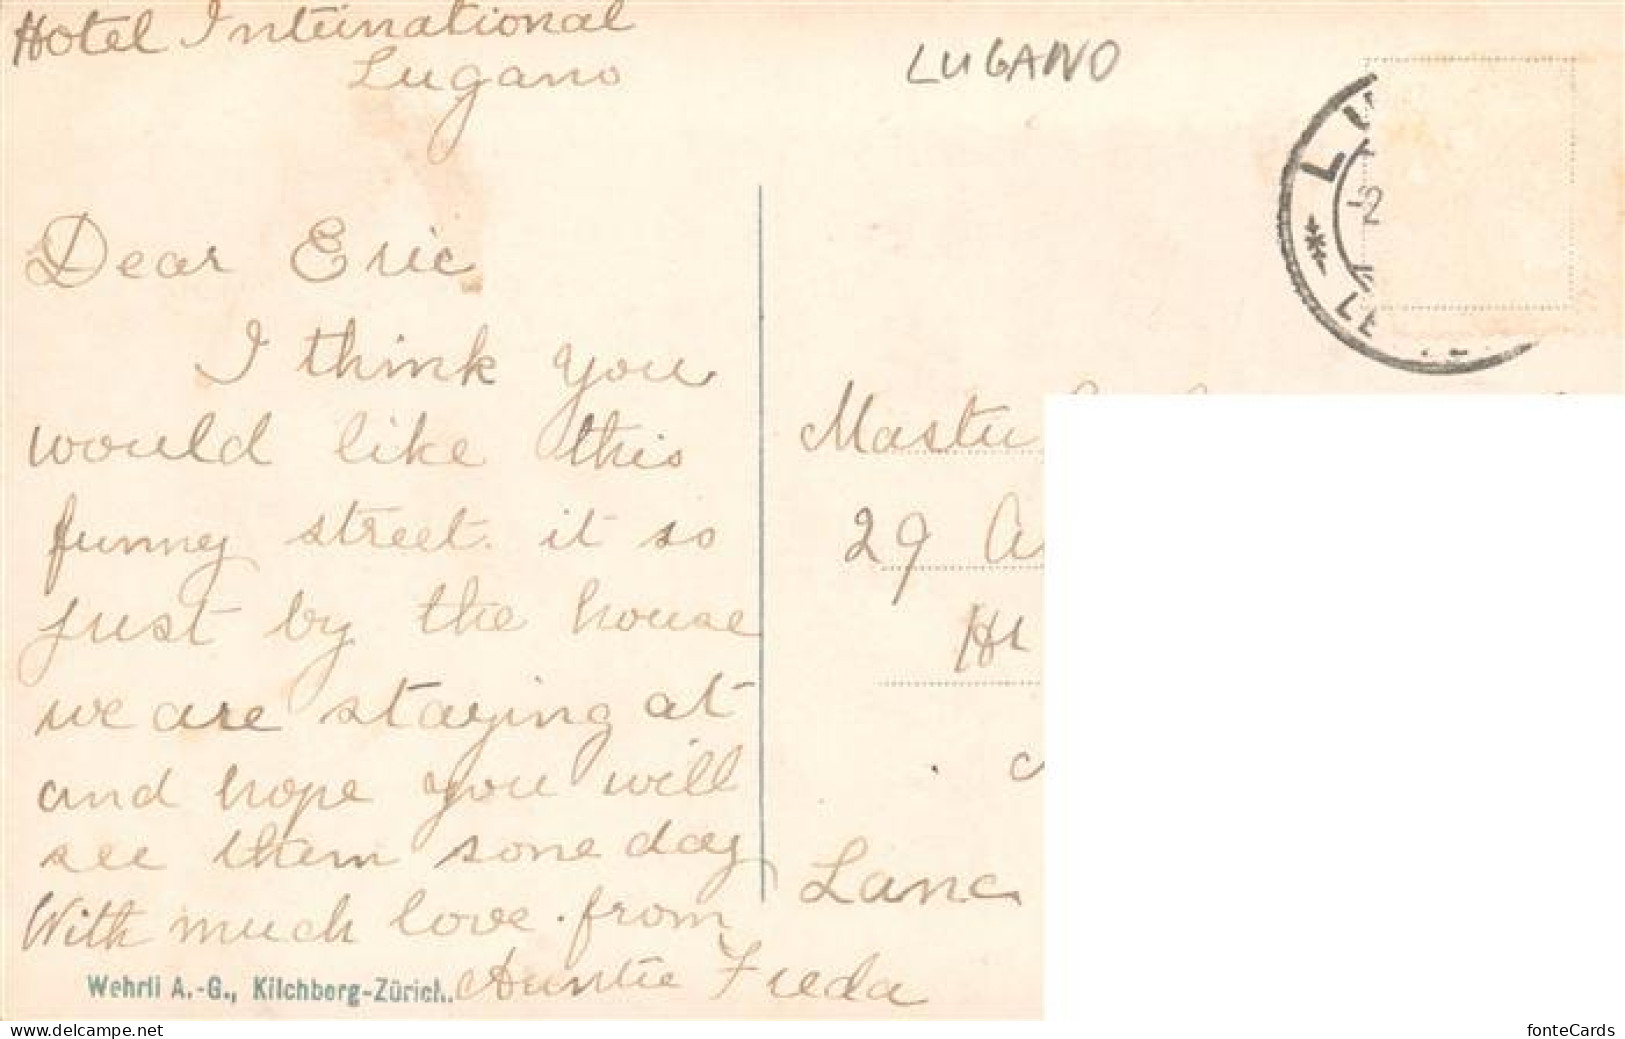 Hotel International
Lugano
Dear Eric
I think you
would like this
funny street. it is
just by the house
we are staying at
and hope you will
see them some day
With much love. from
Auntie Freda
Wehrli A.-G., Kilchberg-Zürich.
LUGANO
LU
-2
Master
29
Lanc
delcampe.net
fonteCards